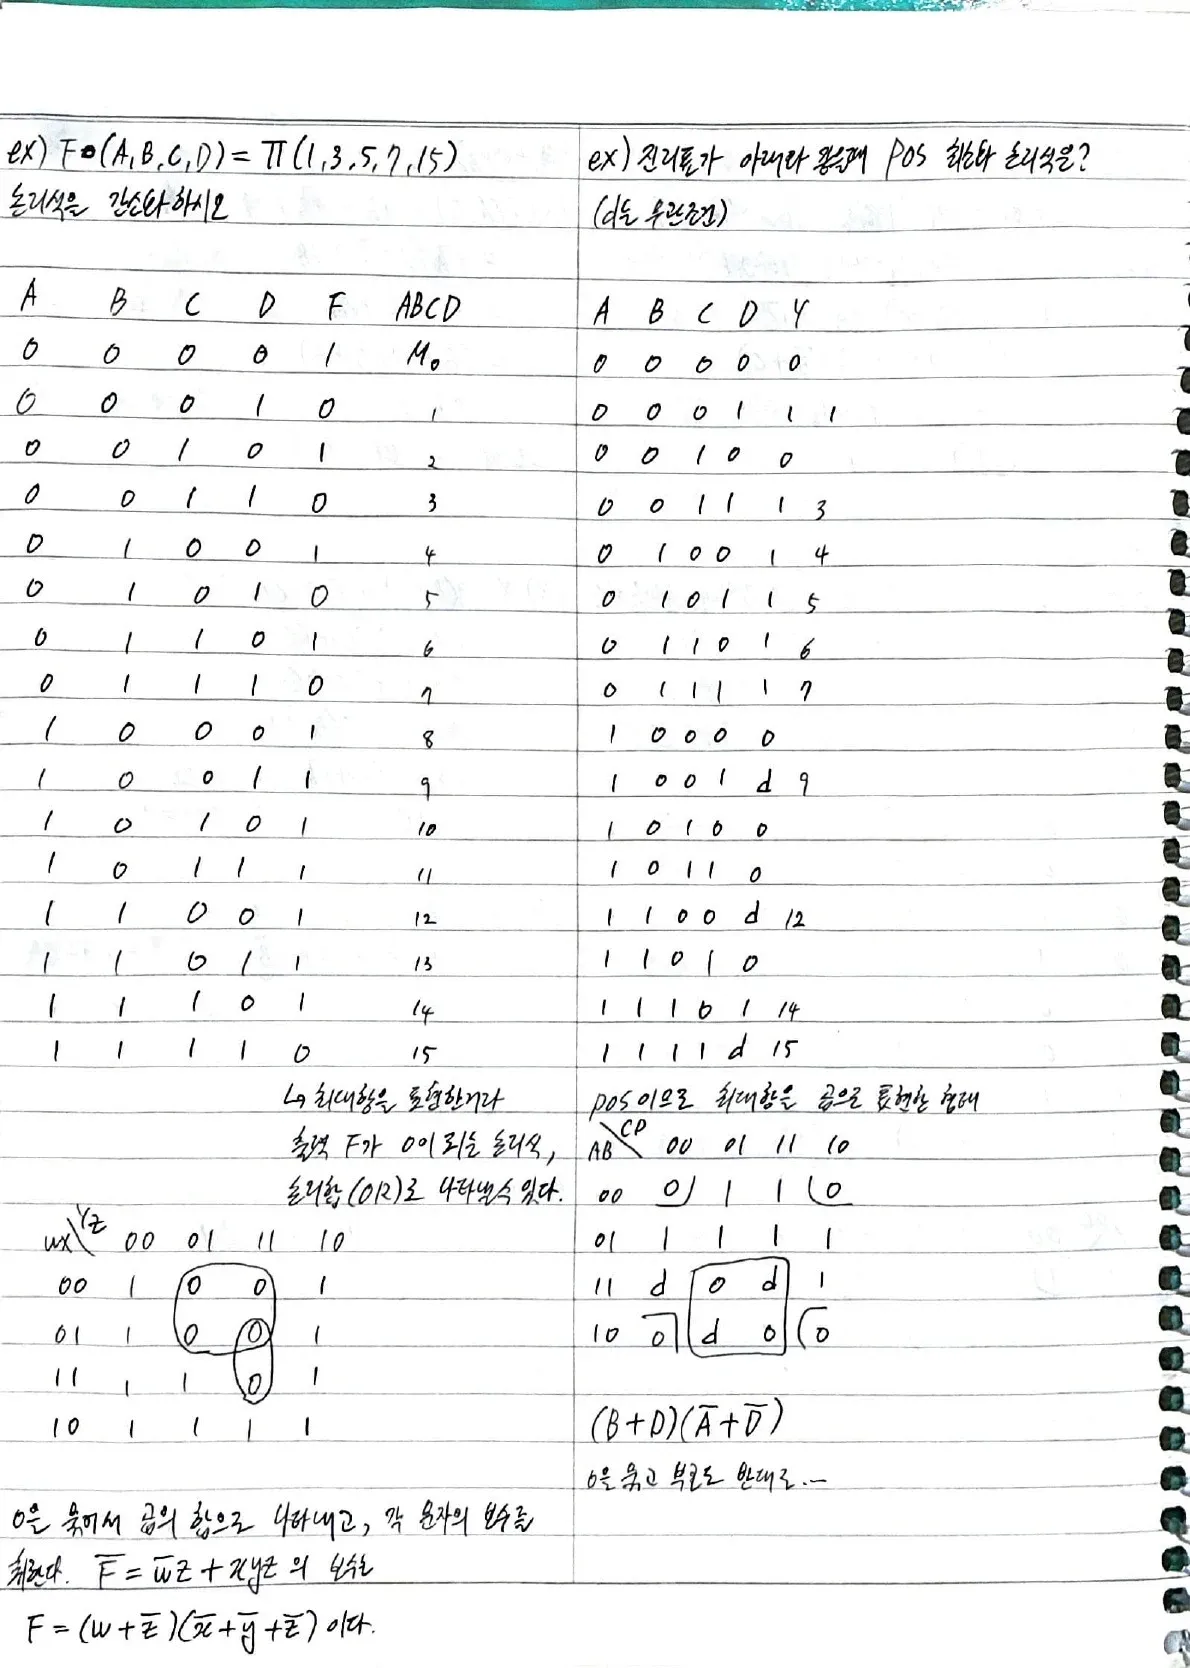 ex) F(A,B,C,D) = Π(1,3,5,7,15)
논리식을 간소화 하시오
A B C D F ABCD
0 0 0 0 1 M₀
0 0 0 1 0 1
0 0 1 0 1 2
0 0 1 1 0 3
0 1 0 0 1 4
0 1 0 1 0 5
0 1 1 0 1 6
0 1 1 1 0 7
1 0 0 0 1 8
1 0 0 1 1 9
1 0 1 0 1 10
1 0 1 1 1 11
1 1 0 0 1 12
1 1 0 1 1 13
1 1 1 0 1 14
1 1 1 1 0 15
↳ 최대항을 표현한거라
출력 F가 0이 되는 논리식,
논리합(OR)로 나타낼수 있다.
wx\yz 00 01 11 10
00 1 0 0 1
01 1 0 0 1
11 1 1 0 1
10 1 1 1 1
0을 묶어서 곱의 합으로 나타내고, 각 문자의 보수를
취한다. F̅ = w̅z + xyz 의 보수는
F = (w + z̅)(x̅ + y̅ + z̅) 이다.
ex) 진리표가 아래와 같을때 POS 최소화 논리식은?
(d는 무관조건)
A B C D Y
0 0 0 0 0
0 0 0 1 1 1
0 0 1 0 0
0 0 1 1 1 3
0 1 0 0 1 4
0 1 0 1 1 5
0 1 1 0 1 6
0 1 1 1 1 7
1 0 0 0 0
1 0 0 1 d 9
1 0 1 0 0
1 0 1 1 0
1 1 0 0 d 12
1 1 0 1 0
1 1 1 0 1 14
1 1 1 1 d 15
pos이므로 최대항을 곱으로 표현한 형태
AB\CD 00 01 11 10
00 0 1 1 0
01 1 1 1 1
11 d 0 d 1
10 0 d 0 0
(B+D)(A̅+D̅)
0을 묶고 부호도 반대로..